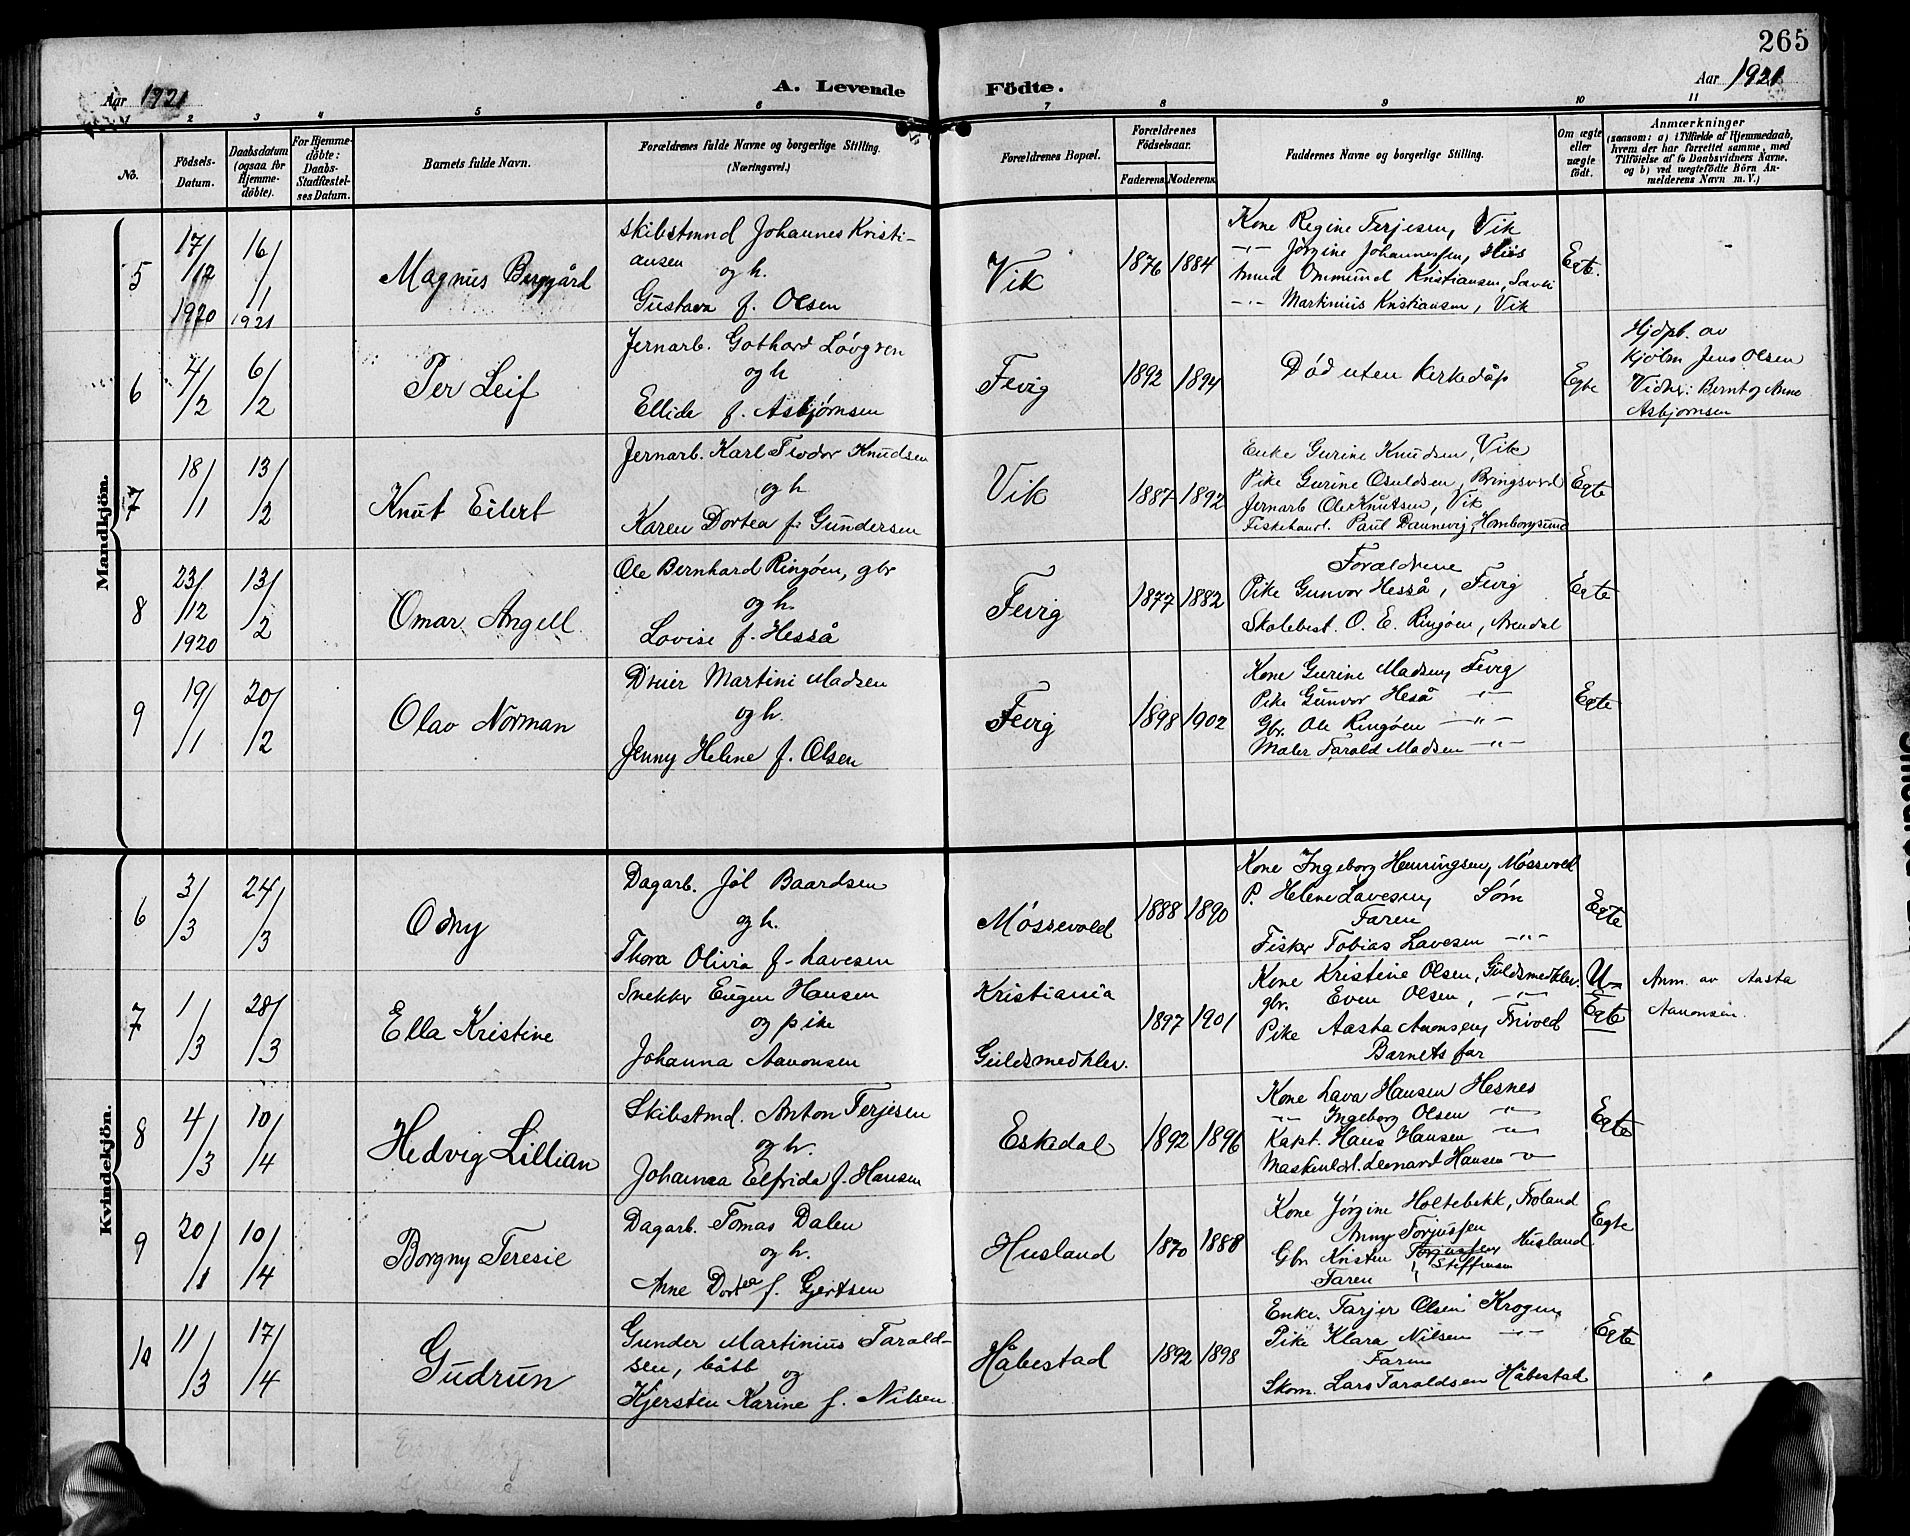 265
Aar 1921
A. Levende Födte.
Aar 1921
1 2 3 4 5 6 7 8 9 10 11
No.
Födsels-Datum.
Daabsdatum (ogsaa for Hjemmedöbte).
For Hjemmedöbte: Daabs-Stadfæstelses Datum.
Barnets fulde Navn.
Forældrenes fulde Navne og borgerlige Stilling. (Næringsvei.)
Forældrenes Bopæl.
Forældrenes Födselsaar.
Faderens. Moderens.
Faddernes Navne og borgerlige Stilling.
Om ægte eller uægte födt.
Anmærkninger
(saasom: a) i Tilfælde af Hjemmedaab, hvem der har forrettet samme, med Tilföielse af to Daabsvidners Navne, og b) ved uægtefödte Börn Anmelderens Navn m. V.)
Mandkjön.
5
17/12 1920
16/1 1921
Magnus Berggård
Skibstmnd Johannes Kristiansen
og h.
Gustava f. Olsen
Vik
1876 1884
Kone Regine Terjesen, Vik
-"- Jørgine Johannessen,
Ommund Kristiansen,
-"- Martinius Kristiansen, Vik
Egte.
6
4/2
6/2
Per Leif
Jernarb. Gothard Lövgren
og h
Ellida f. Asbjørnsen
Fevig
1892 1894
Död uten kirkedåp
Egte
Hjdpt. av
Jens Olsen
Vidner: Bernt og Anne
Asbjørnsen
7
18/1
13/2
Knut Eilert
Jernarb. Karl Teodor Knudsen
og h
Karen Dortea f. Gundersen
Vik
1887 1892
Enke Gurine Knudsen, Vik
Pike Gurine Osuldsen, Bringsverd
Jernarb Ole Knutsen, Vik
Fiskehandl. Paul Dannevig, Homborgsund
Egte
8
23/12 1920
13/2
Omar Angell
Ole Bernhard Ringøen, gbr
og h.
Lovise f. Hesså
Fevig
1877 1882
Forældrene
Pike Gunvor Hesså, Fevig
Skolebest. O. E. Ringøen, Arendal
Egte
9
19/1
20/2
Olav Norman
Dreier Martini Madsen
og h.
Jenny Helene f. Olsen
Fevig
1898 1902
Kone Gurine Madsen, Fevig
Pike Gunvor Heså -"-
Gbr. Ole Ringøen -"-
Maler Tarald Madsen -"-
Egte
Kvindekjön.
6
3/3
24/3
Odny
Dagarb. Jöl Baardsen
og h.
Thora Olivia f. Lavesen
Mössevold
1888 1890
Kone Ingeborg Henningsen, Mössevold
P. Helene Lavesen, Söm
Faren
Fisker Tobias Lavesen -"-
Egte
7
1/3
28/3
Ella Kristine
Snekker Eugen Hansen
og pike
Johanna Aanonsen
Kristiania
Guldsmedklev.
1897 1901
Kone Kristine Olsen, Guldsmedklev.
gbr. Even Olsen, -"-
Pike Aasta Aanonsen, Frivold
Barnets far
U-
Egte
Anm. av Aasta
Aanonsen.
8
4/3
10/4
Hedvig Lillian
Skibstmd. Anton Terjesen
og h.
Johanna Elfrida f. Hansen
Eskedal
1892 1896
Kone Lava Hansen Hesnes
-"- Ingeborg Olsen -"-
Kapt. Hans Hansen -"-
Leonard Hansen -"-
Egte
9
20/1
10/4
Borgny Teresie
Dagarb. Tomas Dalen
og h.
Anne Dortea f. Gjertsen
Husland
1870 1888
Kone Jørgine Holtebekk, Froland
Anny Torjussen
Gbr Kristen Torjussen Husland
Steffensen
Faren
Egte
10
11/3
17/4
Gudrun
Gunder Martinius Taraldsen, båtb
og
Kjersten Karine f. Nilsen
Håbestad
1892 1898
Enke. Tarjer Olsen Krogen,
Pike Klara Nilsen -"-
Faren
Skom. Lars Taraldsen Håbestad
Egte